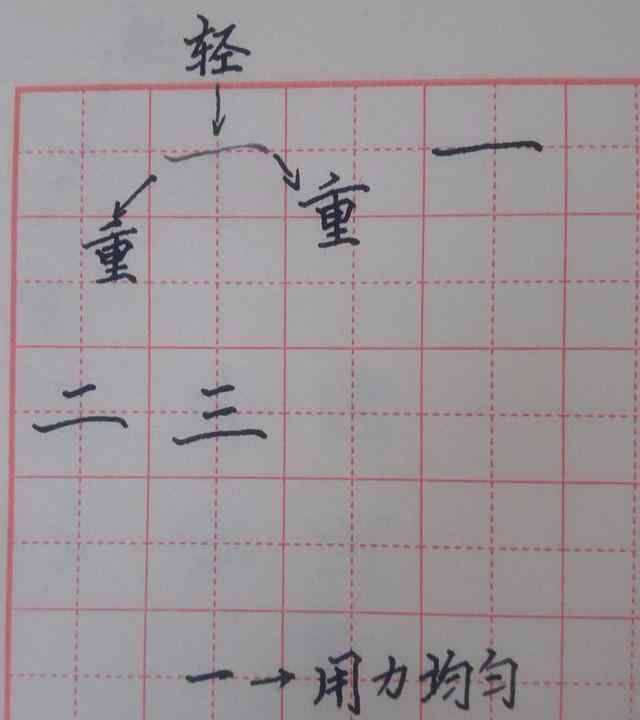 轻
一 一
重 重
二 三
一→用力均匀